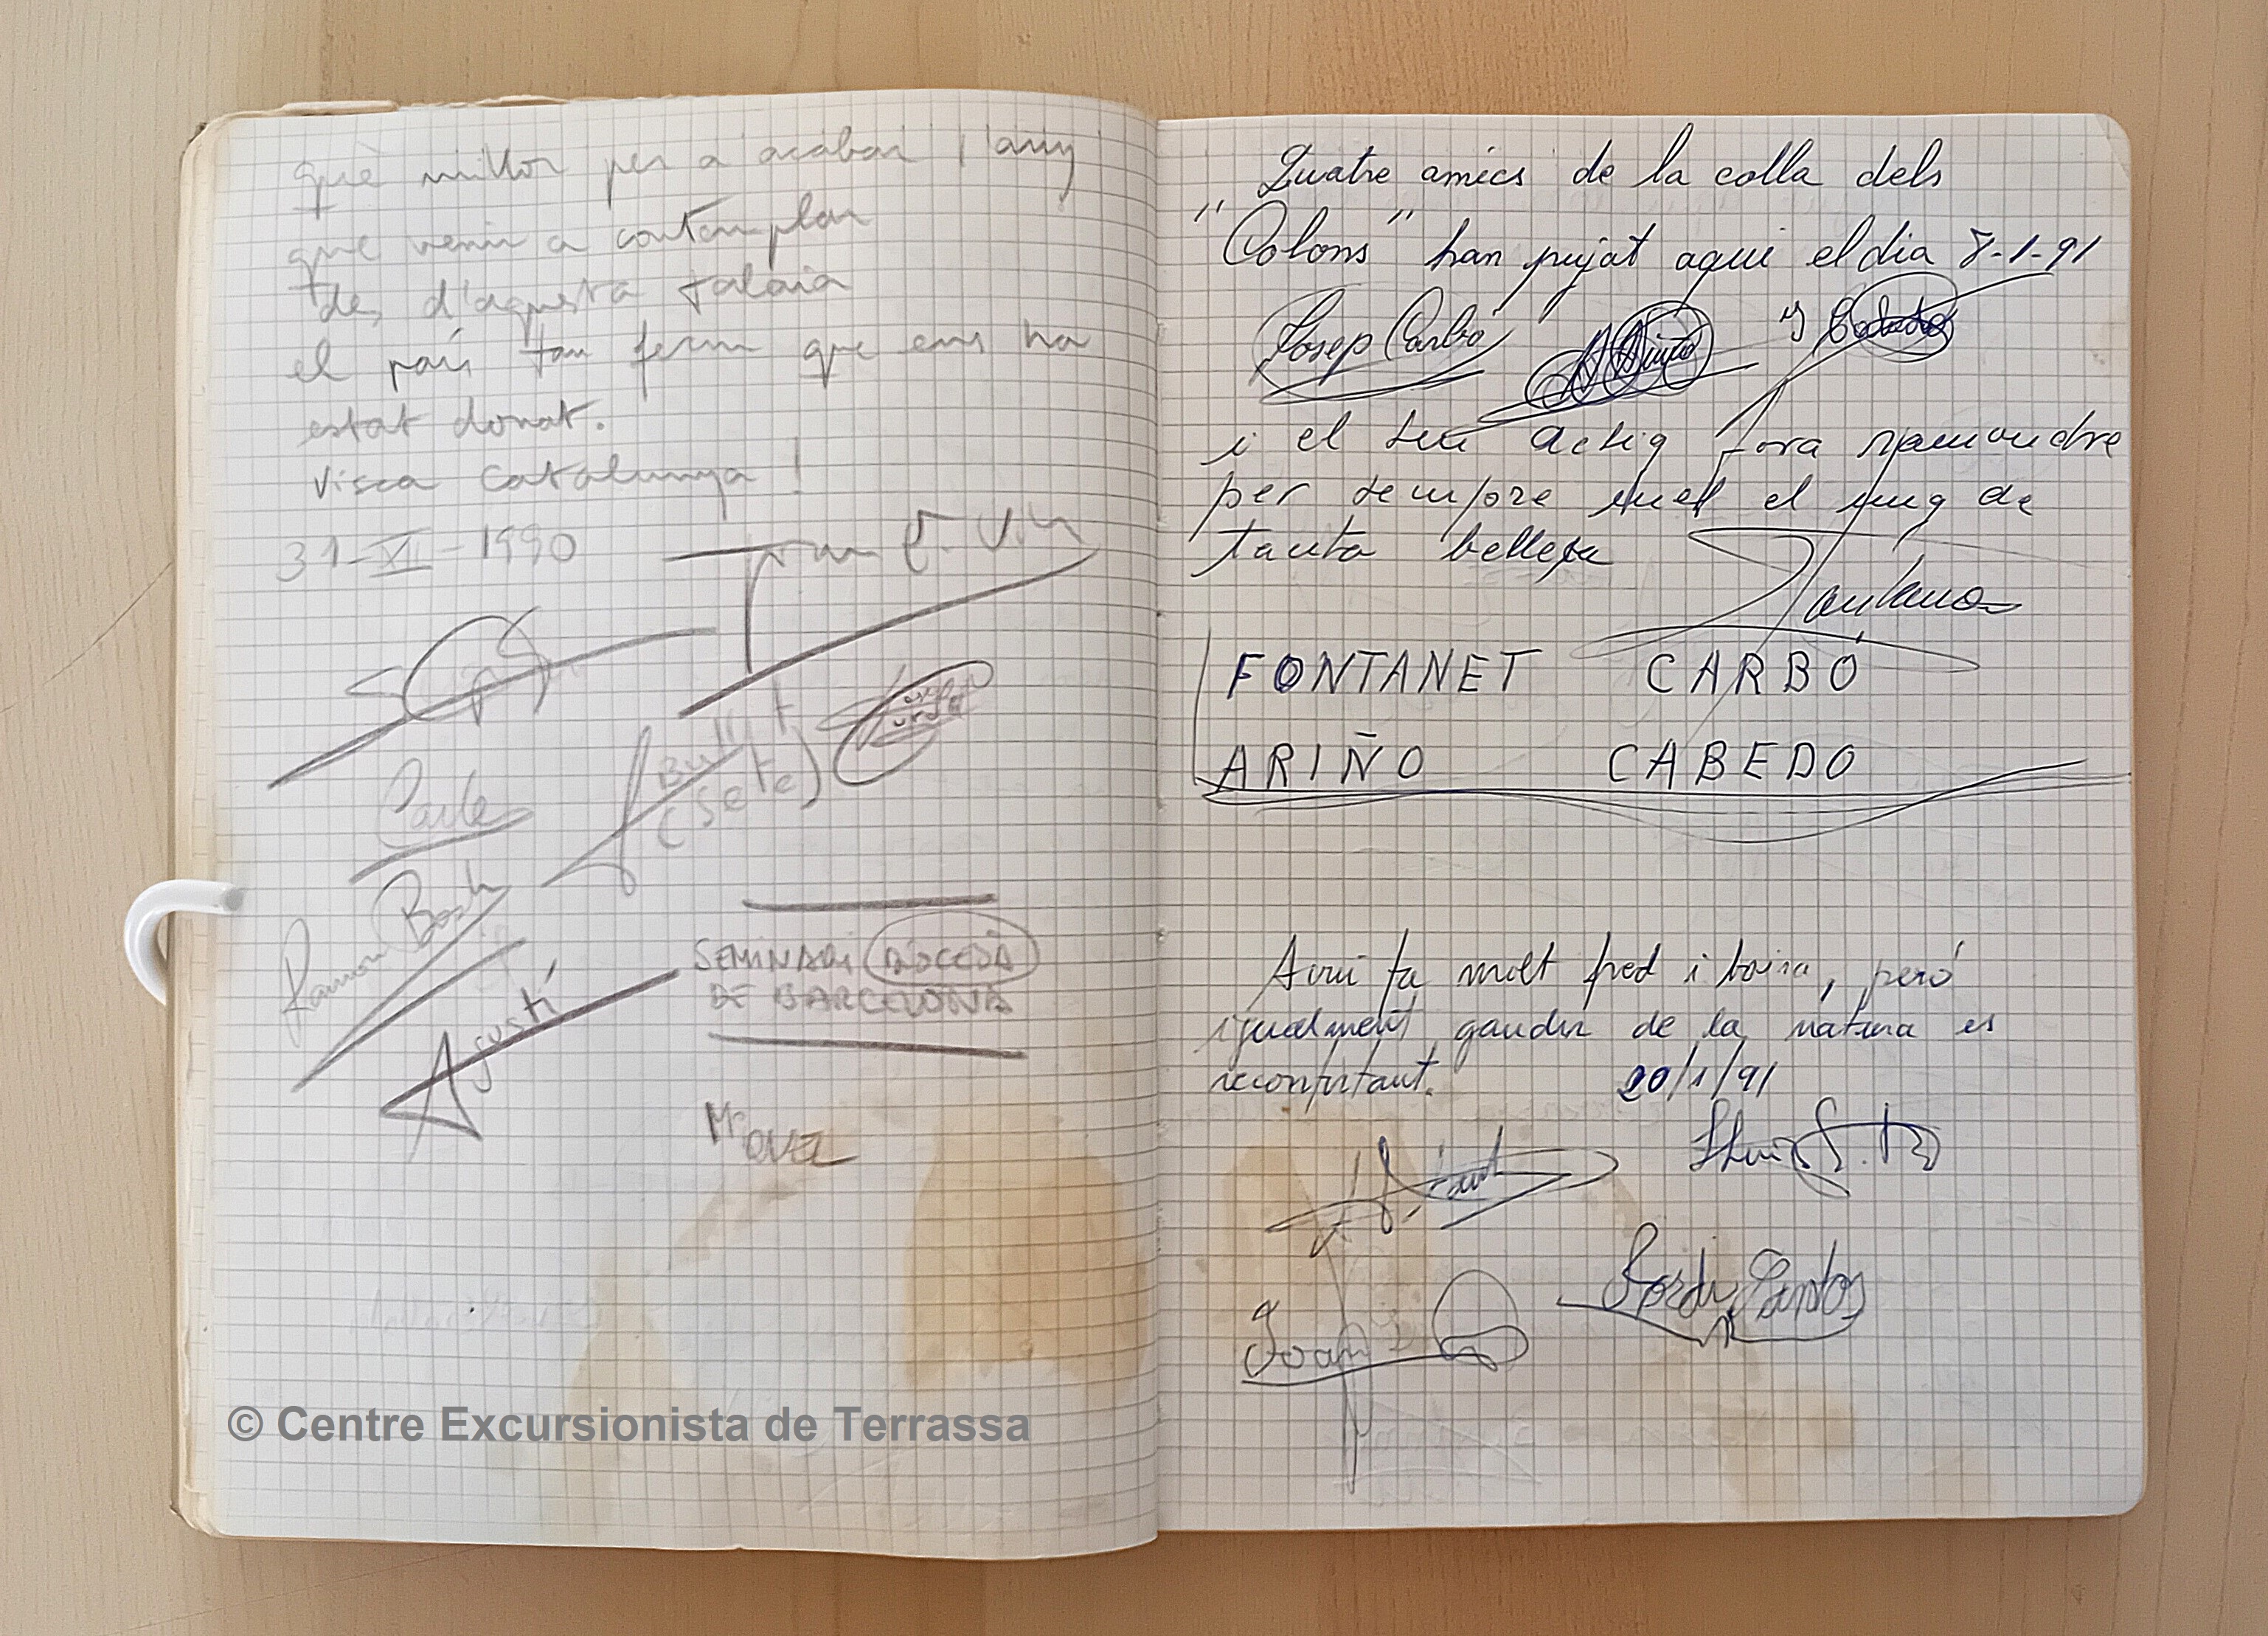 què millor per a acabar l'any
que venir a contemplar
des d'aquesta talaia
el país tan ferm que ens ha
estat donat.
Visca Catalunya!
31-XII-1990
Carle
Bullit
(Sete)
Ramon Bosch
Agustí
SEMINARI DIOCESÀ
DE BARCELONA
MiQUEL
© Centre Excursionista de Terrassa
Quatre amics de la colla dels
"Colons" han pujat aqui el dia 8-1-91
Josep Carbó
i el seu desig fora romandre
per sempre en el mig de
tanta bellesa
FONTANET CARBÓ
ARIÑO CABEDO
Avui fa molt fred i boira, peró
igualment gaudir de la natura es
reconfortant. 20/1/91
Joan
Jordi Santos